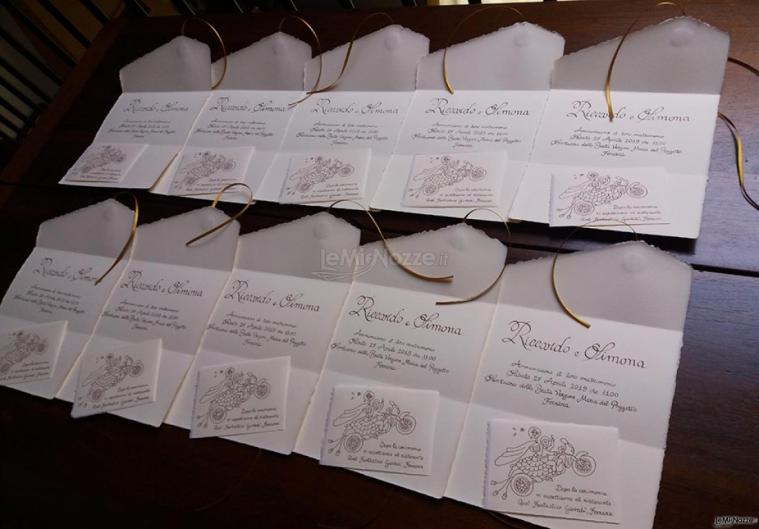 Riccardo e Simona
Annunciano il loro matrimonio
Sabato 27 Aprile 2019 ore 11.00
Santuario della Beata Vergine Maria del Poggetto
Ferrara
Dopo la cerimonia
vi aspettiamo al ristorante
Quel Fantastico Giovedì, Ferrara
LeMieNozze.it
LeMieNozze.it